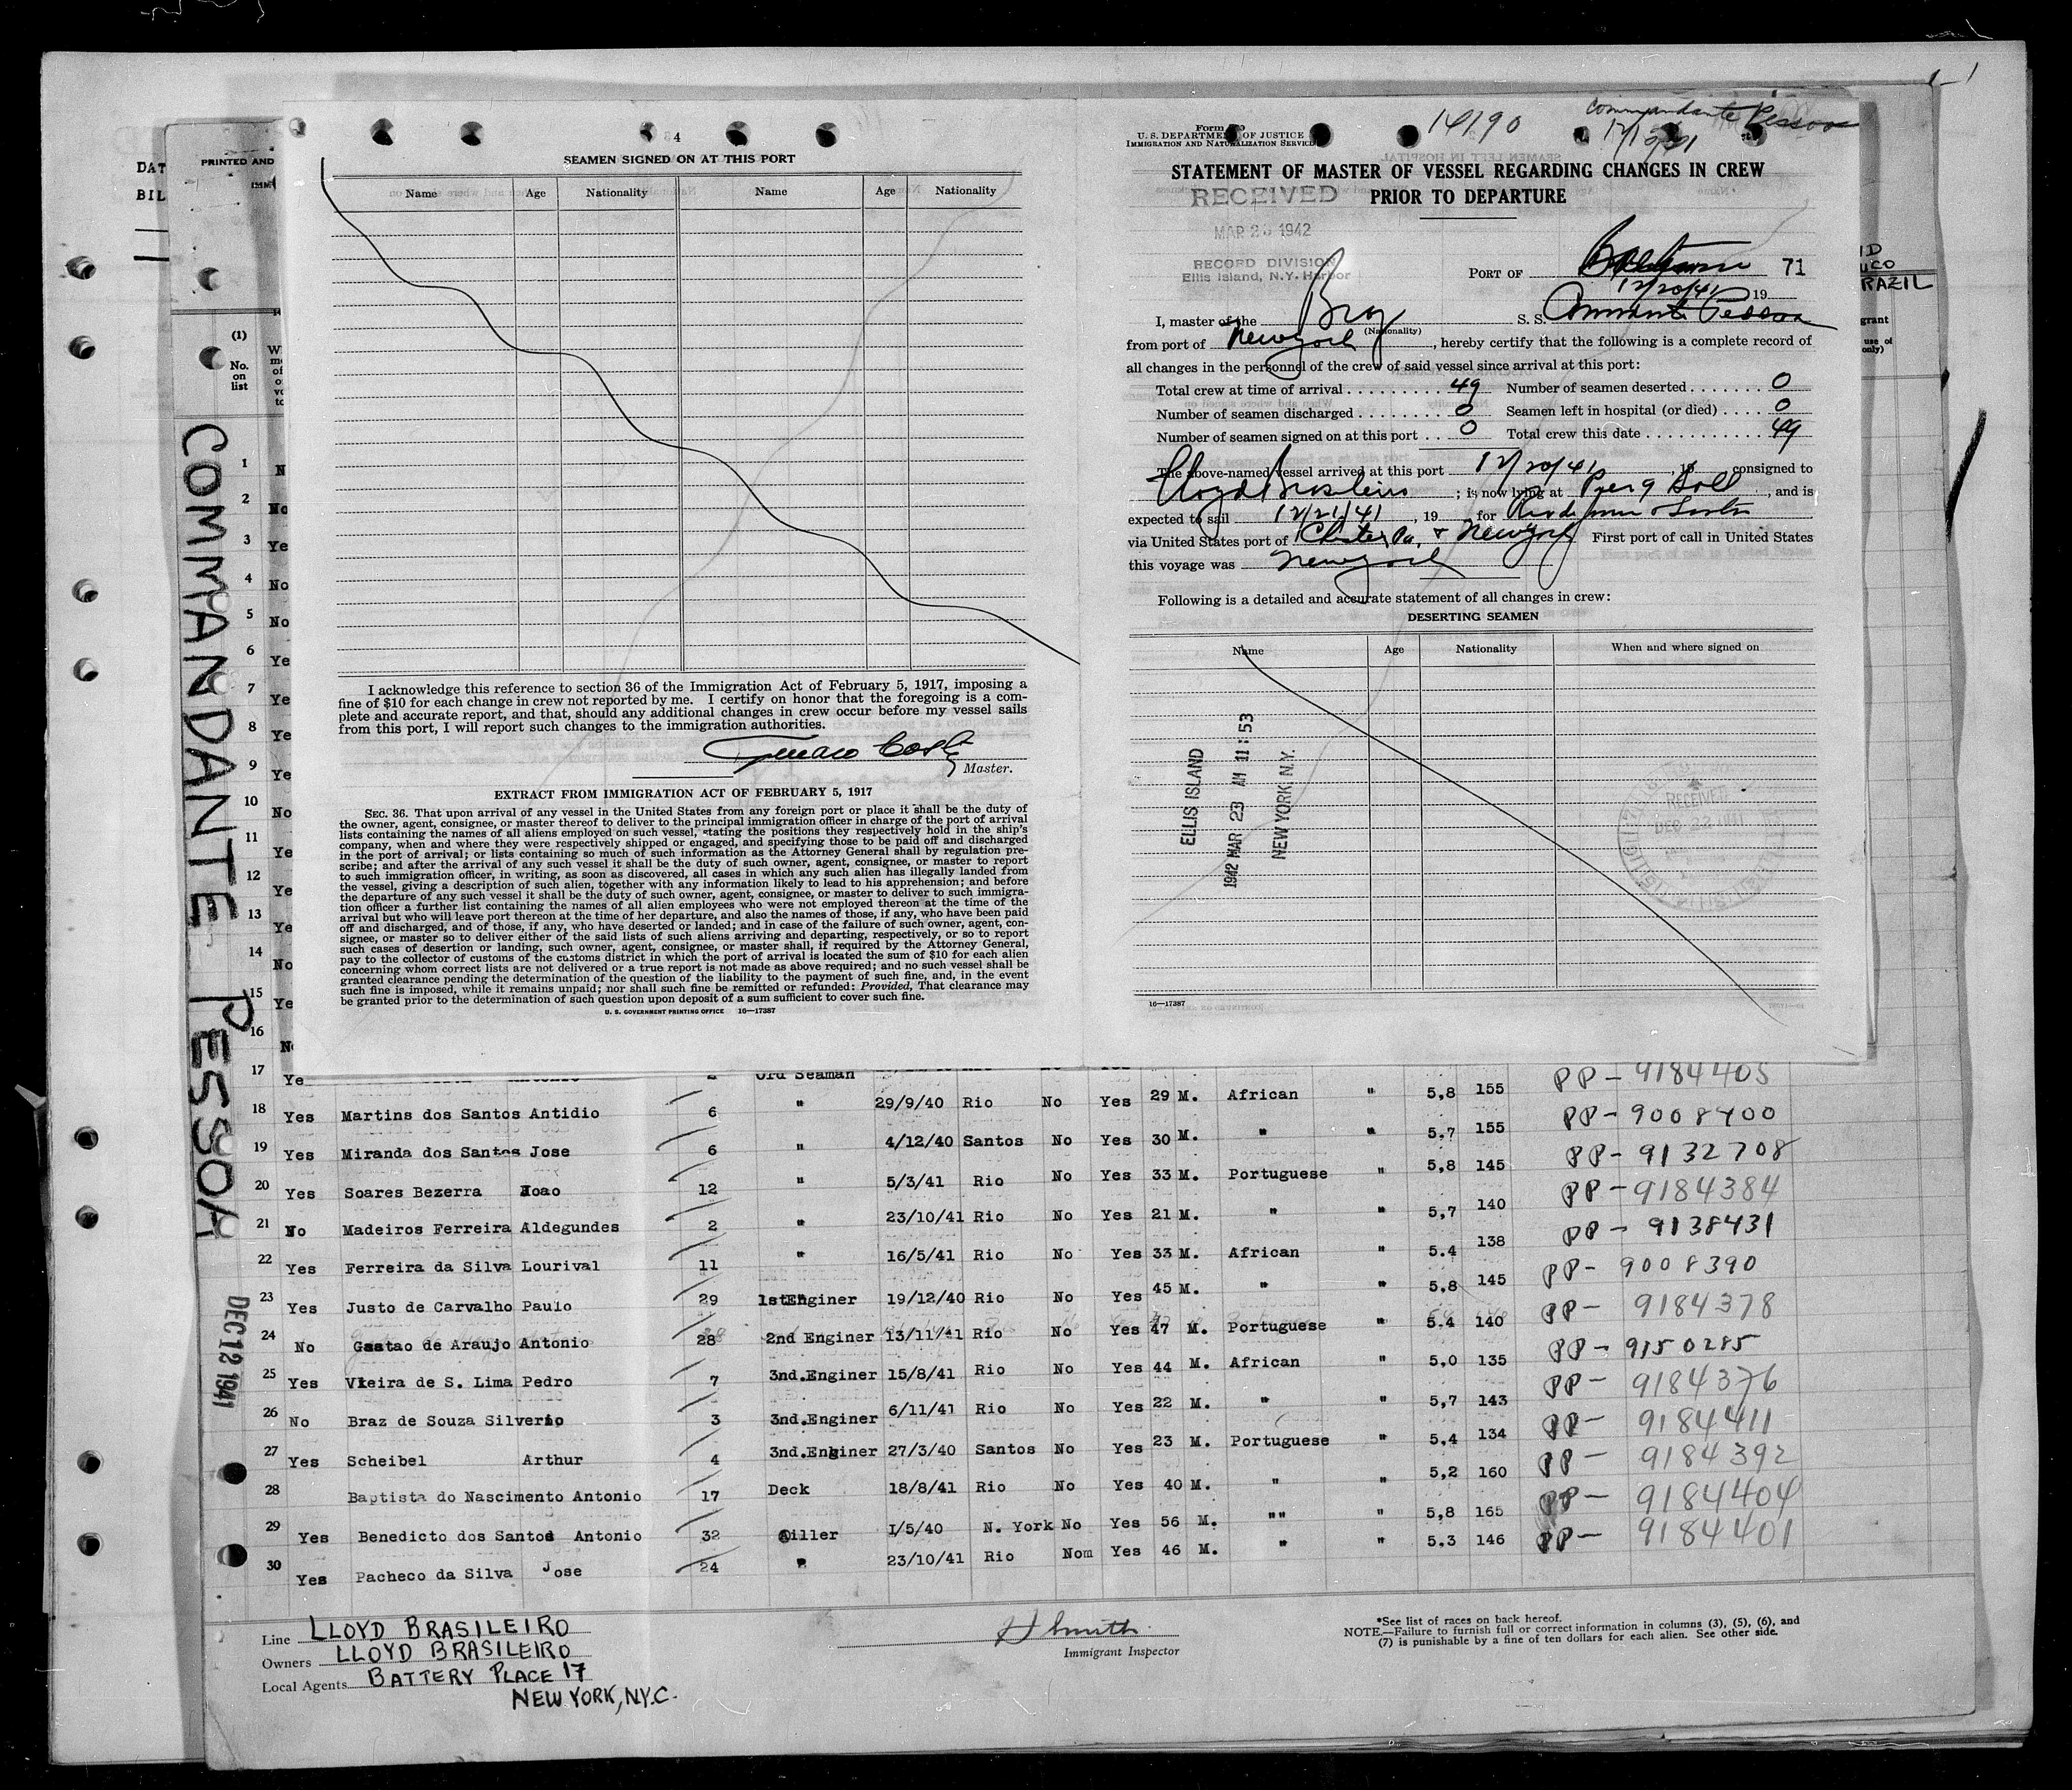 4
SEAMEN SIGNED ON AT THIS PORT
Name Age Nationality Name Age Nationality
I acknowledge this reference to section 36 of the Immigration Act of February 5, 1917, imposing a
fine of $10 for each change in crew not reported by me. I certify on honor that the foregoing is a com-
plete and accurate report, and that, should any additional changes in crew occur before my vessel sails
from this port, I will report such changes to the immigration authorities.
Master.
EXTRACT FROM IMMIGRATION ACT OF FEBRUARY 5, 1917
SEC. 36. That upon arrival of any vessel in the United States from any foreign port or place it shall be the duty of
the owner, agent, consignee, or master thereof to deliver to the principal immigration officer in charge of the port of arrival
lists containing the names of all aliens employed on such vessel, stating the positions they respectively hold in the ship's
company, when and where they were respectively shipped or engaged, and specifying those to be paid off and discharged
in the port of arrival; or lists containing so much of such information as the Attorney General shall by regulation pre-
scribe; and after the arrival of any such vessel it shall be the duty of such owner, agent, consignee, or master to report
to such immigration officer, in writing, as soon as discovered, all cases in which any such alien has illegally landed from
the vessel, giving a description of such alien, together with any information likely to lead to his apprehension; and before
the departure of any such vessel it shall be the duty of such owner, agent, consignee, or master to deliver to such immigra-
tion officer a further list containing the names of all alien employees who were not employed thereon at the time of the
arrival but who will leave port thereon at the time of her departure, and also the names of those, if any, who have been paid
off and discharged, and of those, if any, who have deserted or landed; and in case of the failure of such owner, agent, con-
signee, or master so to deliver either of the said lists of such aliens arriving and departing, respectively, or so to report
such cases of desertion or landing, such owner, agent, consignee, or master shall, if required by the Attorney General,
pay to the collector of customs of the customs district in which the port of arrival is located the sum of $10 for each alien
concerning whom correct lists are not delivered or a true report is not made as above required; and no such vessel shall be
granted clearance pending the determination of the question of the liability to the payment of such fine, and, in the event
such fine is imposed, while it remains unpaid; nor shall such fine be remitted or refunded: Provided, That clearance may
be granted prior to the determination of such question upon deposit of a sum sufficient to cover such fine.
U. S. GOVERNMENT PRINTING OFFICE 16—17387
Form
U. S. DEPARTMENT OF JUSTICE
IMMIGRATION AND NATURALIZATION SERVICE
14190
Commandante Pessoa
STATEMENT OF MASTER OF VESSEL REGARDING CHANGES IN CREW
PRIOR TO DEPARTURE
RECEIVED
MAR 23 1942
RECORD DIVISION
Ellis Island, N.Y. Harbor
PORT OF 71
12/20/41 19
I, master of the Braz S. S. Pessoa
(Nationality)
from port of New York, hereby certify that the following is a complete record of
all changes in the personnel of the crew of said vessel since arrival at this port:
Total crew at time of arrival 49 Number of seamen deserted 0
Number of seamen discharged 0 Seamen left in hospital (or died) 0
Number of seamen signed on at this port 0 Total crew this date 49
The above-named vessel arrived at this port 12/20/41, 19 consigned to
Lloyd Brasileiro; is now lying at Pier 9, and is
expected to sail 12/21/41, 19 for
via United States port of Chester Pa. & New York First port of call in United States
this voyage was New York
Following is a detailed and accurate statement of all changes in crew:
DESERTING SEAMEN
Name Age Nationality When and where signed on
ELLIS ISLAND
1942 MAR 23 AM 11:53
NEW YORK N.Y.
RECEIVED
DEC 22 1941
16—17387
DAT
BIL
PRINTED AND
(1)
No. on list
COMMANDANTE PESSOA
DEC 12 1941
BRAZIL
1
2 No
3 Ye
4 No
5 No
6 Ye
7 Ye
8 Ye
9 Ye
10 No
11 Ye
12 Ye
13 Ye
14 No
15 Ye
16
17 Ye Ord Seaman
18 Yes Martins dos Santos Antidio 6 " 29/9/40 Rio No Yes 29 M. African " 5,8 155 PP-9184405
19 Yes Miranda dos Santos Jose 6 " 4/12/40 Santos No Yes 30 M. " " 5,7 155 PP-9008400
20 Yes Soares Bezerra Joao 12 " 5/3/41 Rio No Yes 33 M. Portuguese " 5,8 145 PP-9132708
21 No Madeiros Ferreira Aldegundes 2 " 23/10/41 Rio No Yes 21 M. " " 5,7 140 PP-9184384
22 Yes Ferreira da Silva Lourival 11 " 16/5/41 Rio No Yes 33 M. African " 5.4 138 PP-9138431
23 Yes Justo de Carvalho Paulo 29 1st Enginer 19/12/40 Rio No Yes 45 M. " " 5,8 145 PP-9008390
24 No Gastao de Araujo Antonio 28 2nd Enginer 13/11/41 Rio No Yes 47 M. Portuguese " 5.4 140 PP-9184378
25 Yes Vieira de S. Lima Pedro 7 3nd.Enginer 15/8/41 Rio No Yes 44 M. African " 5,0 135 PP-9150285
26 No Braz de Souza Silverio 3 3nd.Enginer 6/11/41 Rio No Yes 22 M. " " 5,7 143 PP-9184376
27 Yes Scheibel Arthur 4 3nd.Enginer 27/3/40 Santos No Yes 23 M. Portuguese " 5,4 134 PP-9184411
28 Baptista do Nascimento Antonio 17 Deck 18/8/41 Rio No Yes 40 M. " " 5,2 160 PP-9184392
29 Yes Benedicto dos Santos Antonio 32 Oiller I/5/40 N. York No Yes 56 M. "" " 5,8 165 PP-9184404
30 Yes Pacheco da Silva Jose 24 " 23/10/41 Rio Nom Yes 46 M. " " 5.3 146 PP-9184401
Line LLOYD BRASILEIRO
Owners LLOYD BRASILEIRO
Local Agents BATTERY PLACE 17
NEW YORK, N.Y.C.
H Smith
Immigrant Inspector
*See list of races on back hereof.
NOTE.—Failure to furnish full or correct information in columns (3), (5), (6), and
(7) is punishable by a fine of ten dollars for each alien. See other side.